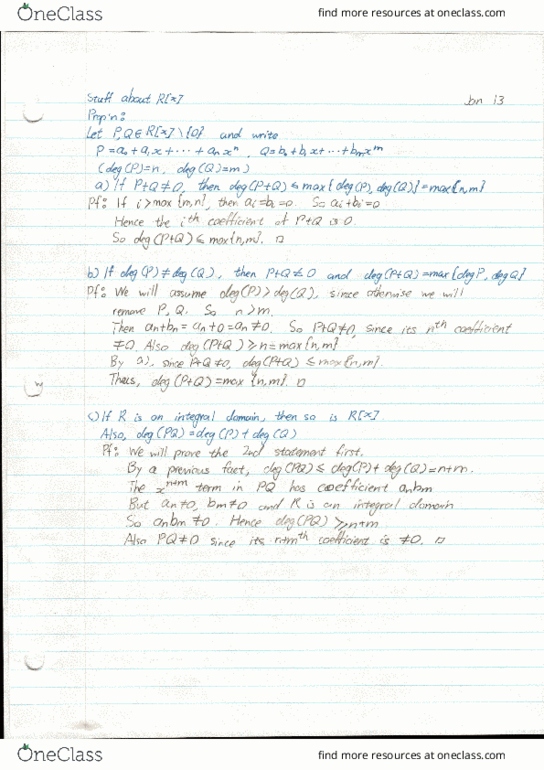 OneClass find more resources at oneclass.com
Stuff about R[x] Jan 13
Prop'n:
Let P,Q ∈ R[x]\{0} and write
P=a₀+a₁x+⋯+aₙxⁿ, Q=b₀+b₁x+⋯+bₘxᵐ
(deg(P)=n, deg(Q)=m)
a) If P+Q≠0, then deg(P+Q) ≤ max{deg(P), deg(Q)}=max{n,m}
Pf: If i>max{m,n}, then aᵢ=bᵢ=0. So aᵢ+bᵢ=0
Hence the iᵗʰ coefficient of P+Q is 0.
So deg(P+Q) ≤ max{n,m}. □
b) If deg(P)≠deg(Q), then P+Q≠0 and deg(P+Q)=max{degP, degQ}
Pf: We will assume deg(P)>deg(Q), since otherwise we will
remove P, Q. So n>m.
Then aₙ+bₙ=aₙ+0=aₙ≠0. So P+Q≠0, since its nᵗʰ coefficient
≠0. Also deg(P+Q)≥n=max{n,m}
By a), since P+Q≠0, deg(P+Q) ≤ max{n,m}.
Thus, deg(P+Q)=max{n,m}. □
c) If R is an integral domain, then so is R[x]
Also, deg(PQ)=deg(P)+deg(Q)
Pf: We will prove the 2nd statement first.
By a previous fact, deg(PQ) ≤ deg(P)+deg(Q)=n+m.
The xⁿ⁺ᵐ term in PQ has coefficient aₙbₘ
But aₙ≠0, bₘ≠0 and R is an integral domain
So aₙbₘ≠0. Hence deg(PQ) ≥ n+m
Also PQ≠0 since its n+mᵗʰ coefficient is ≠0. □
OneClass find more resources at oneclass.com